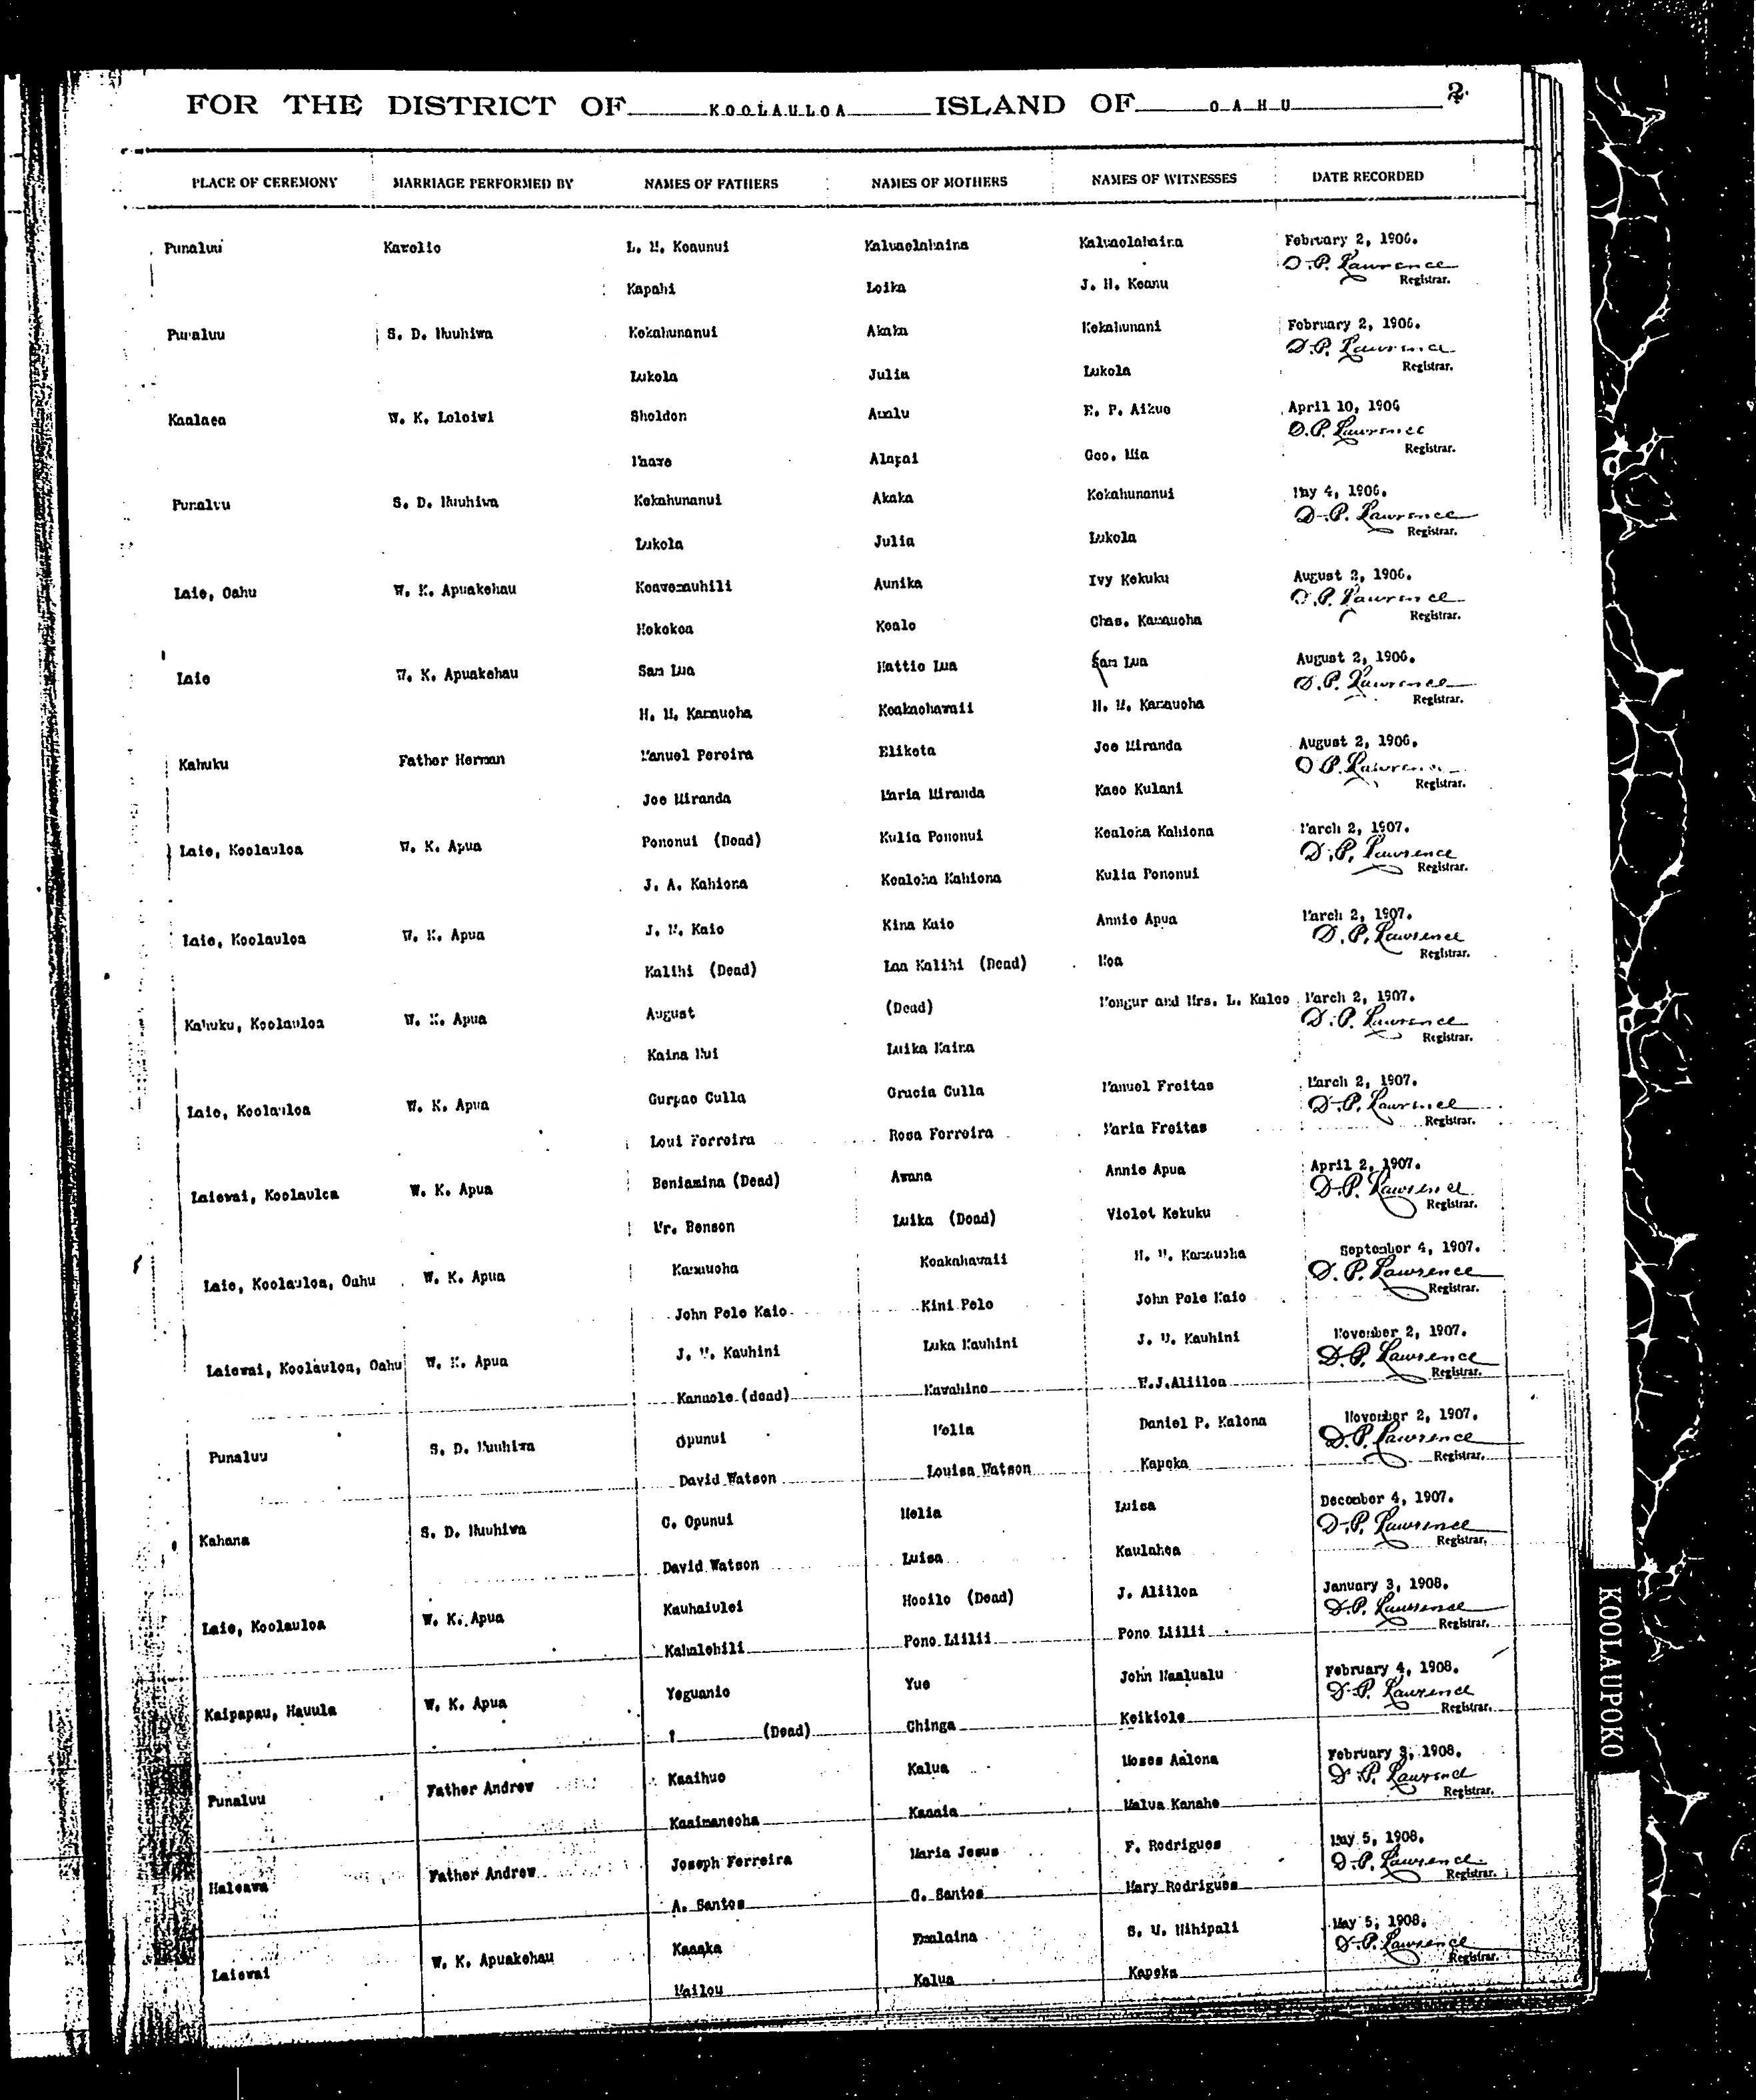 FOR THE DISTRICT OF KOOLAULOA ISLAND OF OAHU 2
PLACE OF CEREMONY MARRIAGE PERFORMED BY NAMES OF FATHERS NAMES OF MOTHERS NAMES OF WITNESSES DATE RECORDED
Punaluu L. M. Keaunui February 2, 1906.
D. P. Lawrence
Kapahi Loika J. H. Keanu Registrar.
Punaluu S. D. Nuuhiwa Kekahunanui Akaka Kekahunani February 2, 1906.
D. P. Lawrence
Lukela Julia Lukela Registrar.
Kaalaea W. K. Leleiwi Sheldon April 10, 1906
D. P. Lawrence
Alapai Geo. Mia Registrar.
Punaluu S. D. Nuuhiwa Kekahunanui Akaka Kekahunanui May 4, 1906.
D. P. Lawrence
Lukela Julia Lukela Registrar.
Laie, Oahu W. K. Apuakehau Keawemauhili Aunika Ivy Kekuku August 2, 1906.
D. P. Lawrence
Hokokoa Kealo Chas. Kamauoha Registrar.
Laie W. K. Apuakehau Sam Lua Hattie Lua Sam Lua August 2, 1906.
D. P. Lawrence
H. M. Kamauoha Keakaohawaii H. M. Kamauoha Registrar.
Kahuku Father Herman Manuel Pereira Eliketa Joe Miranda August 2, 1906.
D. P. Lawrence
Joe Miranda Maria Miranda Kaeo Kulani Registrar.
Laie, Koolauloa W. K. Apua Pononui (Dead) Kulia Pononui Kealoha Kahiona March 2, 1907.
D. P. Lawrence
J. A. Kahiona Kealoha Kahiona Kulia Pononui Registrar.
Laie, Koolauloa W. K. Apua J. M. Kaio Kina Kaio Annie Apua March 2, 1907.
D. P. Lawrence
Kalihi (Dead) Laa Kalihi (Dead) Registrar.
Kahuku, Koolauloa W. K. Apua August (Dead) and Mrs. L. Kaleo March 2, 1907.
D. P. Lawrence
Kaina Nui Luika Kaina Registrar.
Laie, Koolauloa W. K. Apua Gurpao Culla Gracia Culla Manuel Freitas March 2, 1907.
D. P. Lawrence
Loui Ferreira Rosa Ferreira Maria Freitas Registrar.
Laiewai, Koolauloa W. K. Apua Beniamina (Dead) Awana Annie Apua April 2, 1907.
D. P. Lawrence
Mr. Benson Luika (Dead) Violet Kekuku Registrar.
Laie, Koolauloa, Oahu W. K. Apua Kamauoha Keakahawaii H. M. Kamauoha September 4, 1907.
D. P. Lawrence
John Pele Kaio Kini Pele John Pele Kaio Registrar.
Laiewai, Koolauloa, Oahu W. K. Apua J. M. Kauhini Luka Kauhini J. M. Kauhini November 2, 1907.
D. P. Lawrence
Kanuole (dead) Kawahine E.J.Aliiloa Registrar.
Punaluu S. D. Nuuhiwa Opunui Melia Daniel P. Kalona November 2, 1907.
D. P. Lawrence
David Watson Louisa Watson Kapeka Registrar.
Kahana S. D. Nuuhiwa C. Opunui Melia Luisa December 4, 1907.
D. P. Lawrence
David Watson Luisa Kaulahea Registrar.
Laie, Koolauloa W. K. Apua Kauhaiulei Hooilo (Dead) J. Aliiloa January 3, 1908.
D. P. Lawrence
Kahalehili Pono Liilii Pono Liilii Registrar.
Kaipapau, Hauula W. K. Apua Yeguanio Yue John Naalualu February 4, 1908.
D. P. Lawrence
? (Dead) Chinga Keikiole Registrar.
Punaluu Father Andrew Kaaihue Kalua Moses Aalona February 3, 1908.
D. P. Lawrence
Kaaimaneoha Kaaaia Malua Kanahe Registrar.
Haleawa Father Andrew Joseph Ferreira Maria Jesus F. Rodrigues May 5, 1908.
D. P. Lawrence
A. Santos G. Santos Mary Rodrigues Registrar.
Laiewai W. K. Apuakehau Kaaaka Emalaina S. W. Nihipali May 5, 1908.
D. P. Lawrence
Mailou Kalua Kapeka Registrar.
KOOLAUPOKO